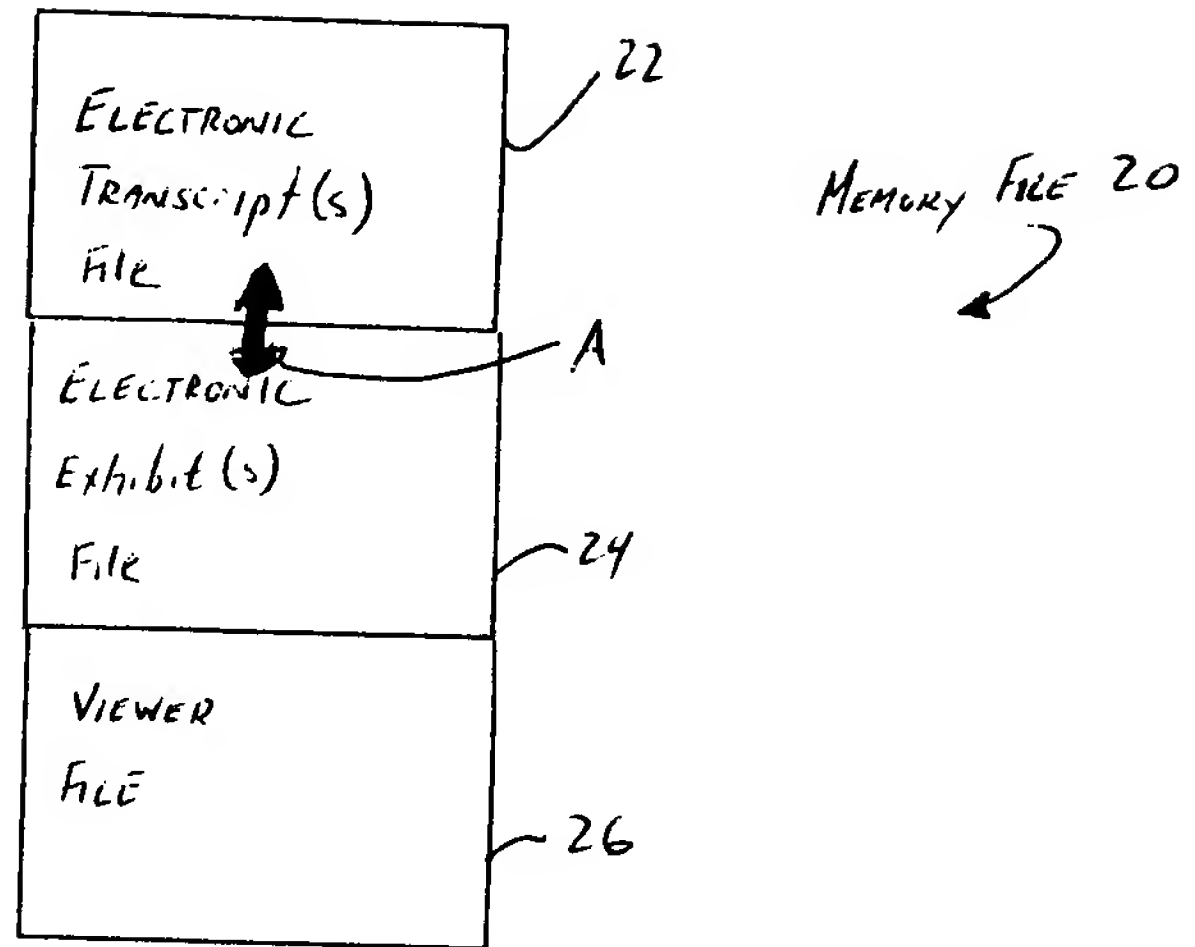 ELECTRONIC
TRANSCript(s)
File
22
MEMORY FILE 20
A
ELECTRONIC
Exhibit(s)
File
24
VIEWER
FILE
26